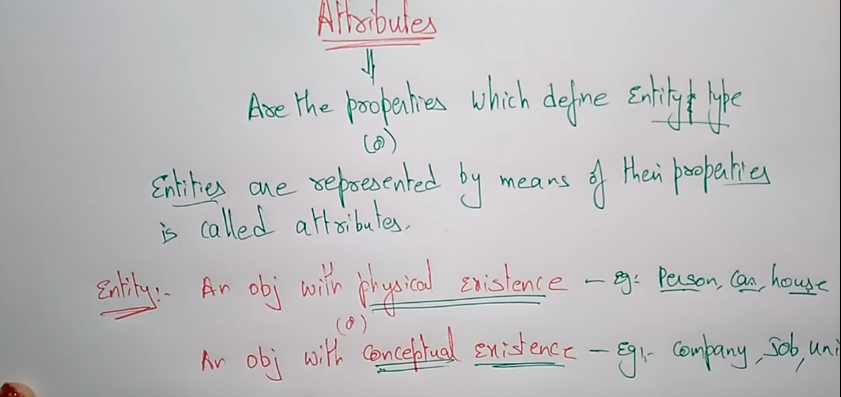 Attributes
Are the properties which define Entity type
(or)
Entities are represented by means of their properties
is called attributes.
Entity:- An obj with physical existence - eg: Person, Car, house
(or)
An obj with conceptual existence - Eg:- Company, Job, uni